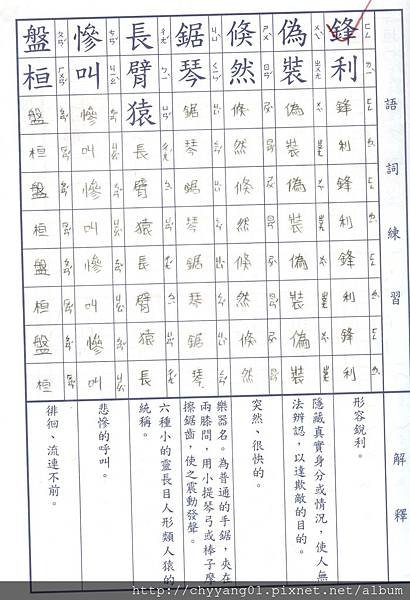 語詞練習
解釋
鋒利鋒利鋒利鋒利鋒利
形容銳利。
偽裝偽裝偽裝偽裝偽裝
隱藏真實身分或情況，使人無
法辨認，以達欺敵的目的。
倏然倏然倏然倏然倏然
突然、很快的。
鋸琴鋸琴鋸琴鋸琴鋸琴
樂器名。為普通的手鋸，夾在
兩膝間，用小提琴弓或棒子摩
擦鋸齒，使之震動發聲。
長臂猿長臂猿長臂猿長
六種小的靈長目人形類人猿的
統稱。
慘叫慘叫慘叫慘叫慘叫
悲慘的呼叫。
盤桓盤桓盤桓盤桓盤桓
徘徊、流連不前。
http://chyyang01.pixnet.net/album